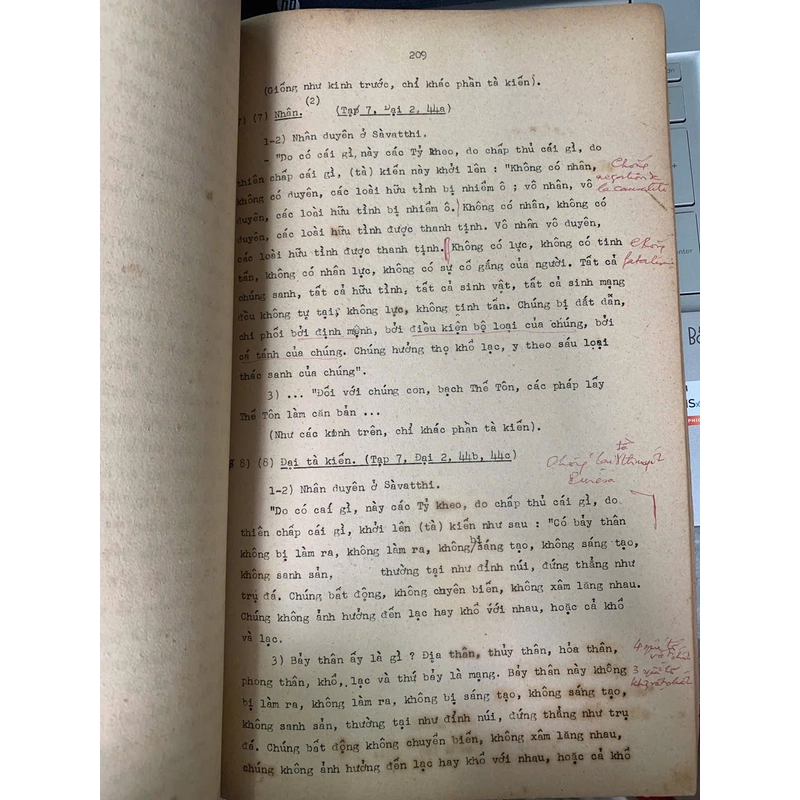 209
(Giống như kinh trước, chỉ khác phần tà kiến).
(2)
(7) Nhân. (Tạp 7, Đại 2, 44a)
1-2) Nhân duyên ở Sàvatthi.
- "Do có cái gì, này các Tỷ kheo, do chấp thủ cái gì, do
thiên chấp cái gì, (tà) kiến này khởi lên : "Không có nhân,
không có duyên, các loài hữu tình bị nhiễm ô ; vô nhân, vô
duyên, các loài hữu tình bị nhiễm ô. Không có nhân, không có
duyên, các loài hữu tình được thanh tịnh. Vô nhân vô duyên,
các loài hữu tình được thanh tịnh. Không có lực, không có tinh
tấn, không có nhân lực, không có sự cố gắng của người. Tất cả
chúng sanh, tất cả hữu tình, tất cả sinh vật, tất cả sinh mạng
đều không tự tại, không lực, không tinh tấn. Chúng bị dắt dẫn,
chi phối bởi định mệnh, bởi điều kiện bộ loại của chúng, bởi
cá tánh của chúng. Chúng hưởng thọ khổ lạc, y theo sáu loại
thác sanh của chúng".
3) ... "Đối với chúng con, bạch Thế Tôn, các pháp lấy
Thế Tôn làm căn bản ...
(Như các kinh trên, chỉ khác phần tà kiến).
8) (8) Đại tà kiến. (Tạp 7, Đại 2, 44b, 44c)
1-2) Nhân duyên ở Sàvatthi.
"Do có cái gì, này các Tỷ kheo, do chấp thủ cái gì, do
thiên chấp cái gì, khởi lên (tà) kiến như sau : "Có bảy thân
không bị làm ra, không làm ra, không bị sáng tạo, không sáng tạo,
không sanh sản, thường tại như đỉnh núi, đứng thẳng như
trụ đá. Chúng bất động, không chuyên biến, không xâm lăng nhau.
Chúng không ảnh hưởng đến lạc hay khổ với nhau, hoặc cả khổ
và lạc.
3) Bảy thân ấy là gì ? Địa thân, thủy thân, hỏa thân,
phong thân, khổ, lạc và thứ bảy là mạng. Bảy thân này không
bị làm ra, không làm ra, không bị sáng tạo, không sáng tạo,
không sanh sản, thường tại như đỉnh núi, đứng thẳng như trụ
đá. Chúng bất động không chuyển biến, không xâm lăng nhau,
chúng không ảnh hưởng đến lạc hay khổ với nhau, hoặc cả khổ
Chống
la causalité
Chống
enter